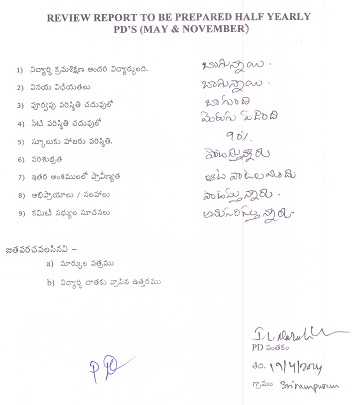 REVIEW REPORT TO BE PREPARED HALF YEARLY
PD'S (MAY & NOVEMBER)
1) విద్యార్థి క్రమశిక్షణ అందరి విద్యార్థులది. బాగున్నాయి.
2) వినయ విధేయతలు బాగున్నాయి.
3) పూర్వపు పరిస్థితి చదువులో బాగుంది
4) నేటి పరిస్థితి చదువులో మెరుగు పడింది
5) స్కూలుకు హాజరు పరిస్థితి. 90%
6) పరిశుభ్రత పాటిస్తున్నారు
7) ఇతర అంశములలో ప్రావీణ్యత ఆట పాటలయందు
8) అభిప్రాయాలు / సలహాలు పాటిస్తున్నారు.
9) కమిటి సభ్యుల సూచనలు అనుసరిస్తున్నారు.
జతపరచవలసినవి –
a) మార్కుల పత్రము
b) విద్యార్థి దాతకు వ్రాసిన ఉత్తరము
PD సంతకం
తేది. 19/4/2024
గ్రామం: Srirampuram